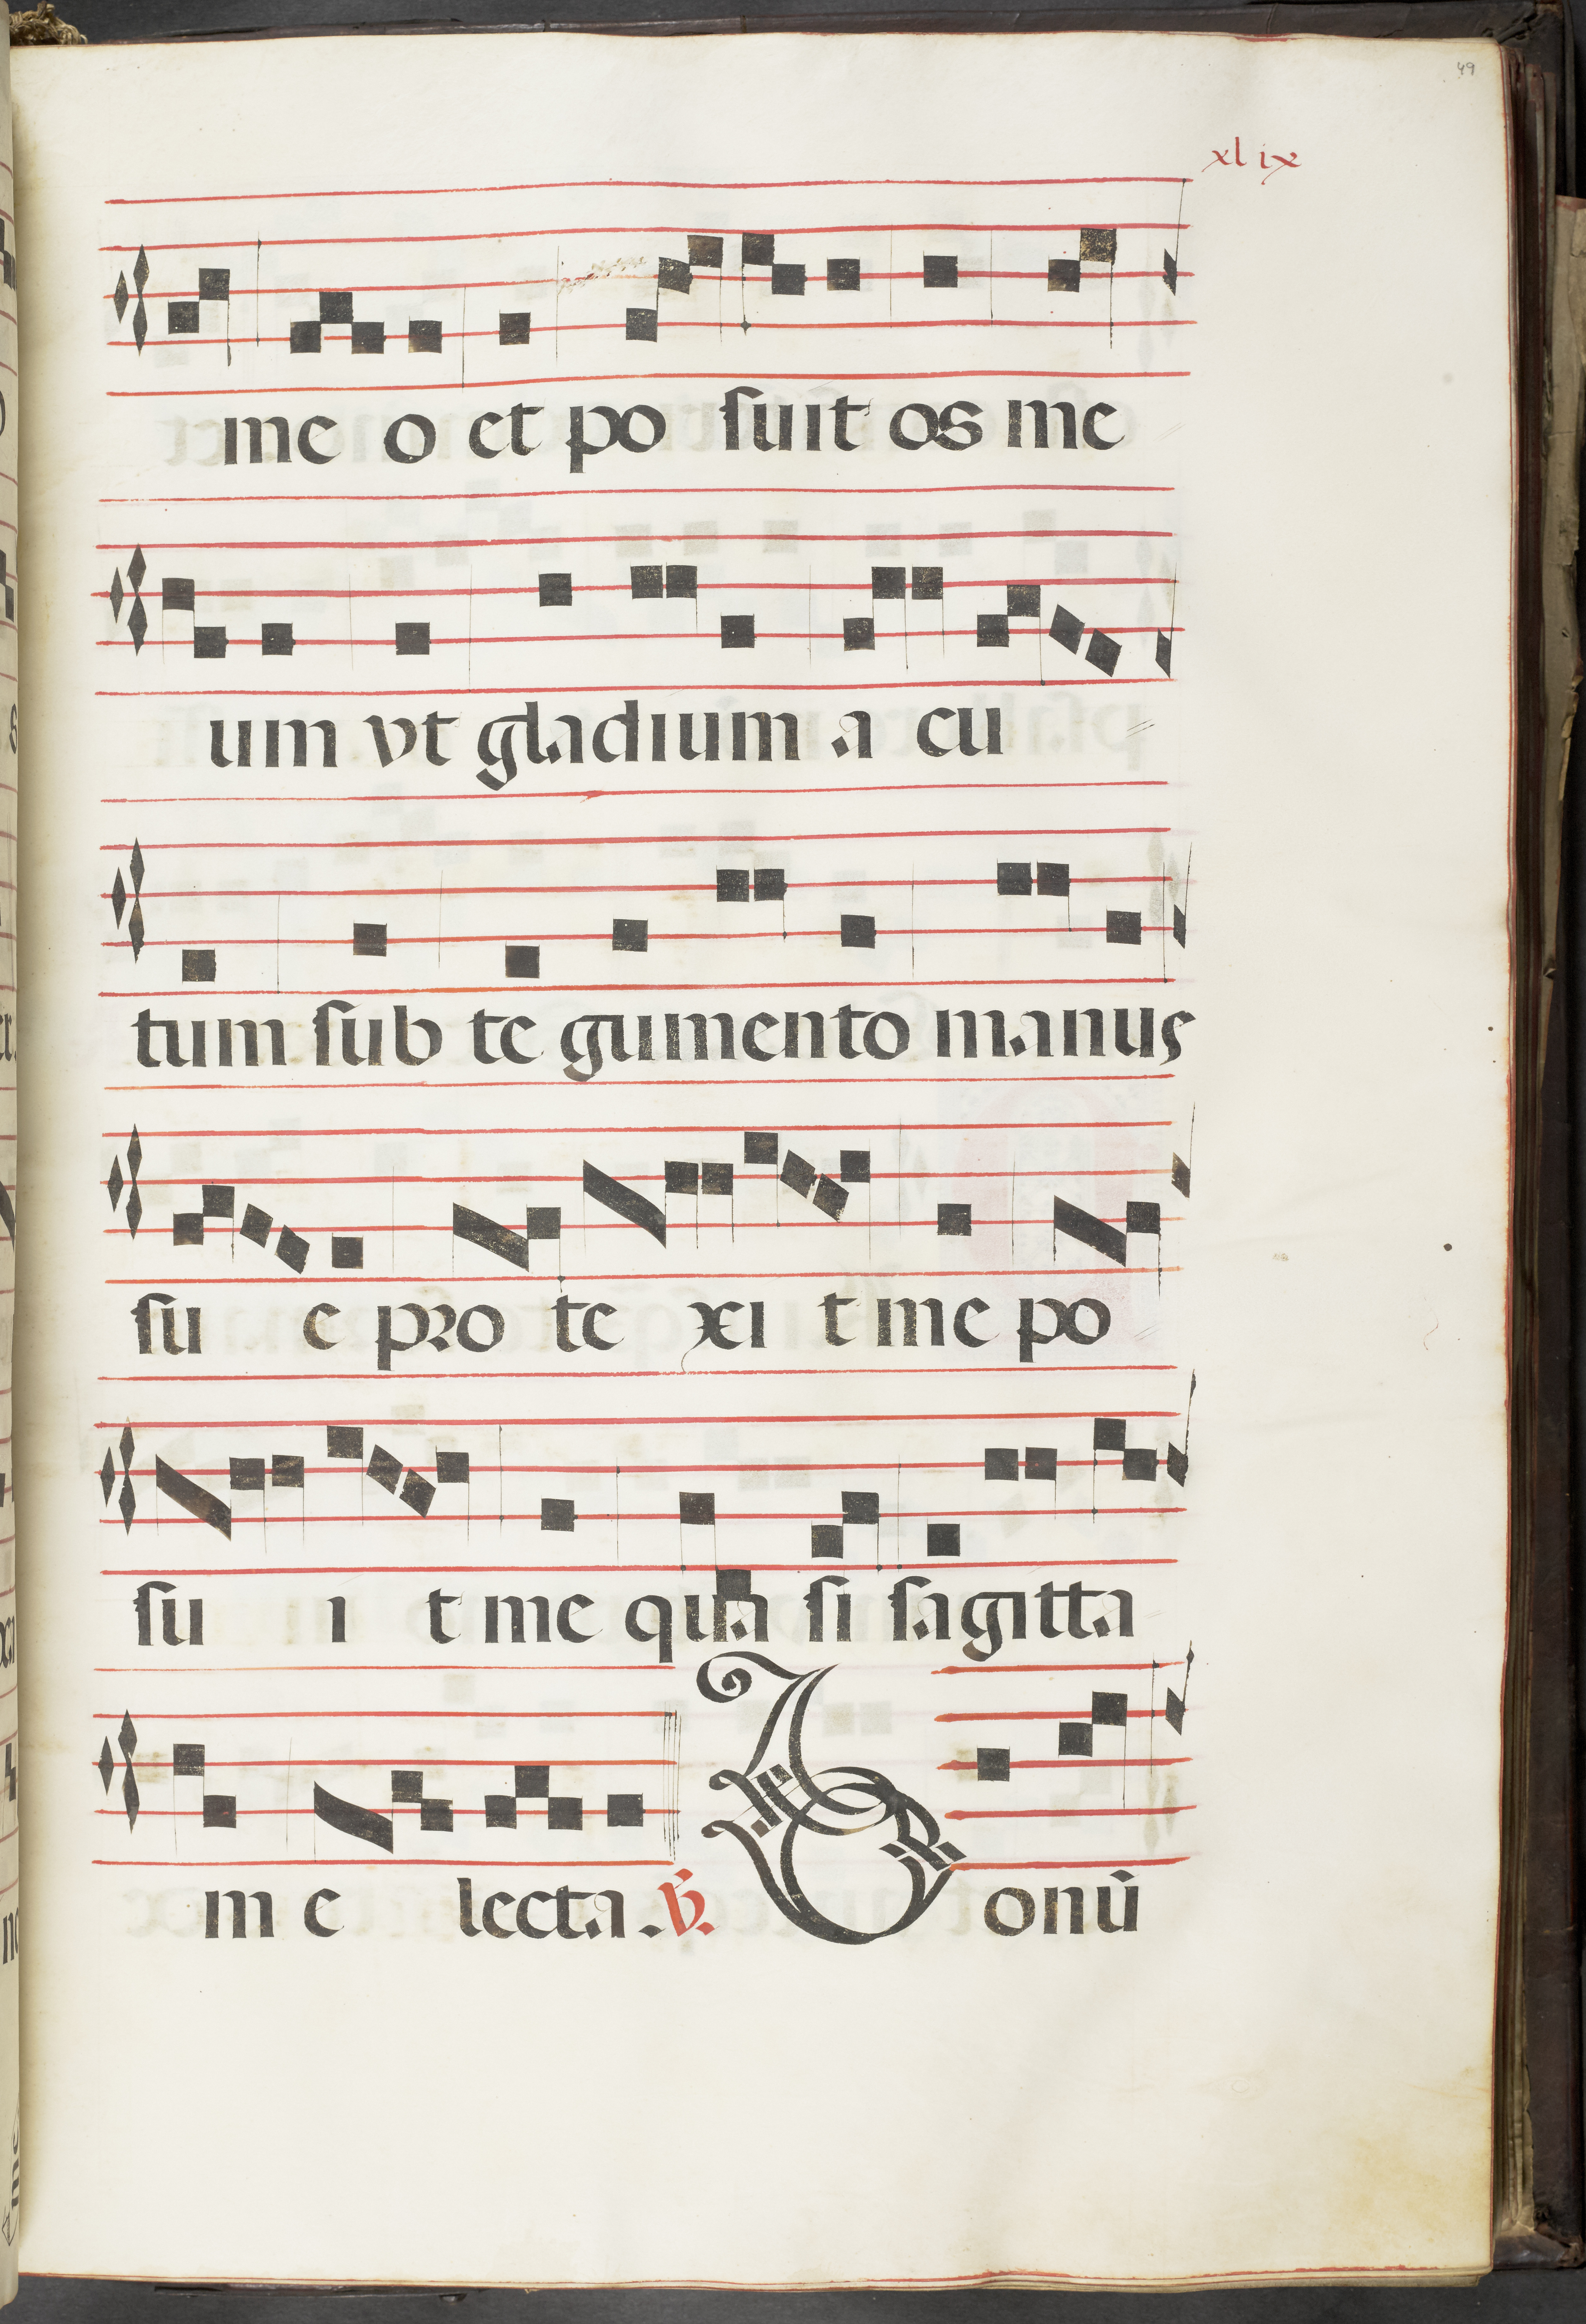 49
xlix
me o et po suit os me
um vt gladium a cu
tum sub te gumento manus
su e pro te xi t me po
su i t me qua si sagitta
m e lecta. ℣. Bonū